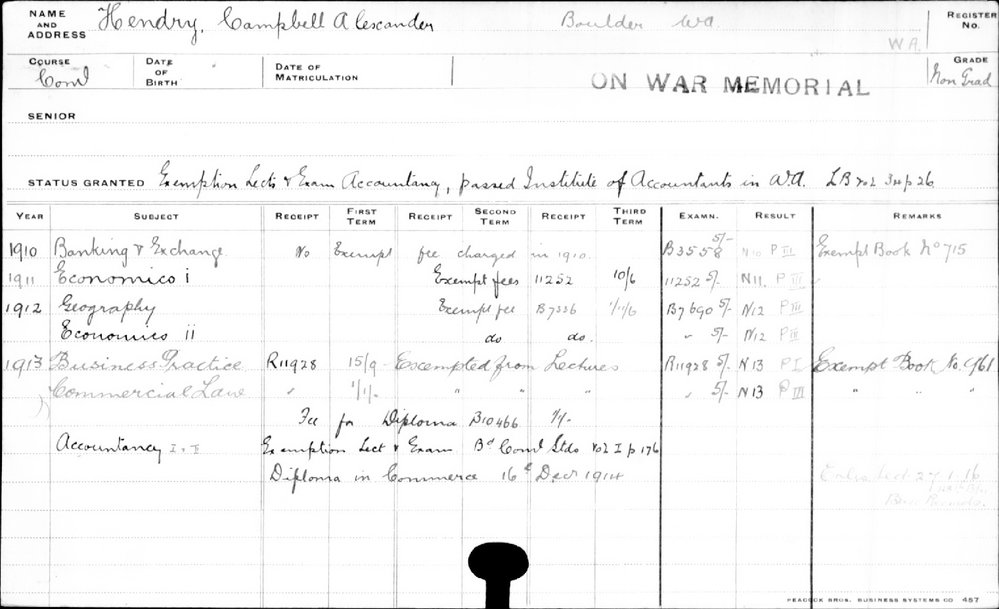 NAME AND ADDRESS Hendry, Campbell Alexander Boulder WA W.A. REGISTER No.
COURSE Coml DATE OF BIRTH DATE OF MATRICULATION ON WAR MEMORIAL GRADE Non Grad
SENIOR
STATUS GRANTED Exemption Lects & Exam Accountancy, passed Institute of Accountants in W.A. LB vol 3 p 26
YEAR SUBJECT RECEIPT FIRST TERM RECEIPT SECOND TERM RECEIPT THIRD TERM EXAMN. RESULT REMARKS
1910 Banking & Exchange No Exempt fee charged in 1910. B3558 5/- N10 P III Exempt Book No 715
1911 Economics i Exempt fees 11252 10/6 11252 5/- N11. P III
1912 Geography Exempt fee B7336 1/11/6 B7690 5/- N12 P III
Economics ii do do. " 5/- N12 P III
1913 Business Practice R11928 15/9 Exempted from Lectures R11928 5/- N13 P I Exempt Book No. 961
Commercial Law " 1/1/- " " " 5/- N13 P III " " "
Fee for Diploma B10466
Accountancy I & II Exemption Lect & Exam Bd Coml Stds Vol I p 176
Diploma in Commerce 16th Decr 1914 Enlisted 27.1.16
PEACOCK BROS. BUSINESS SYSTEMS CO 457